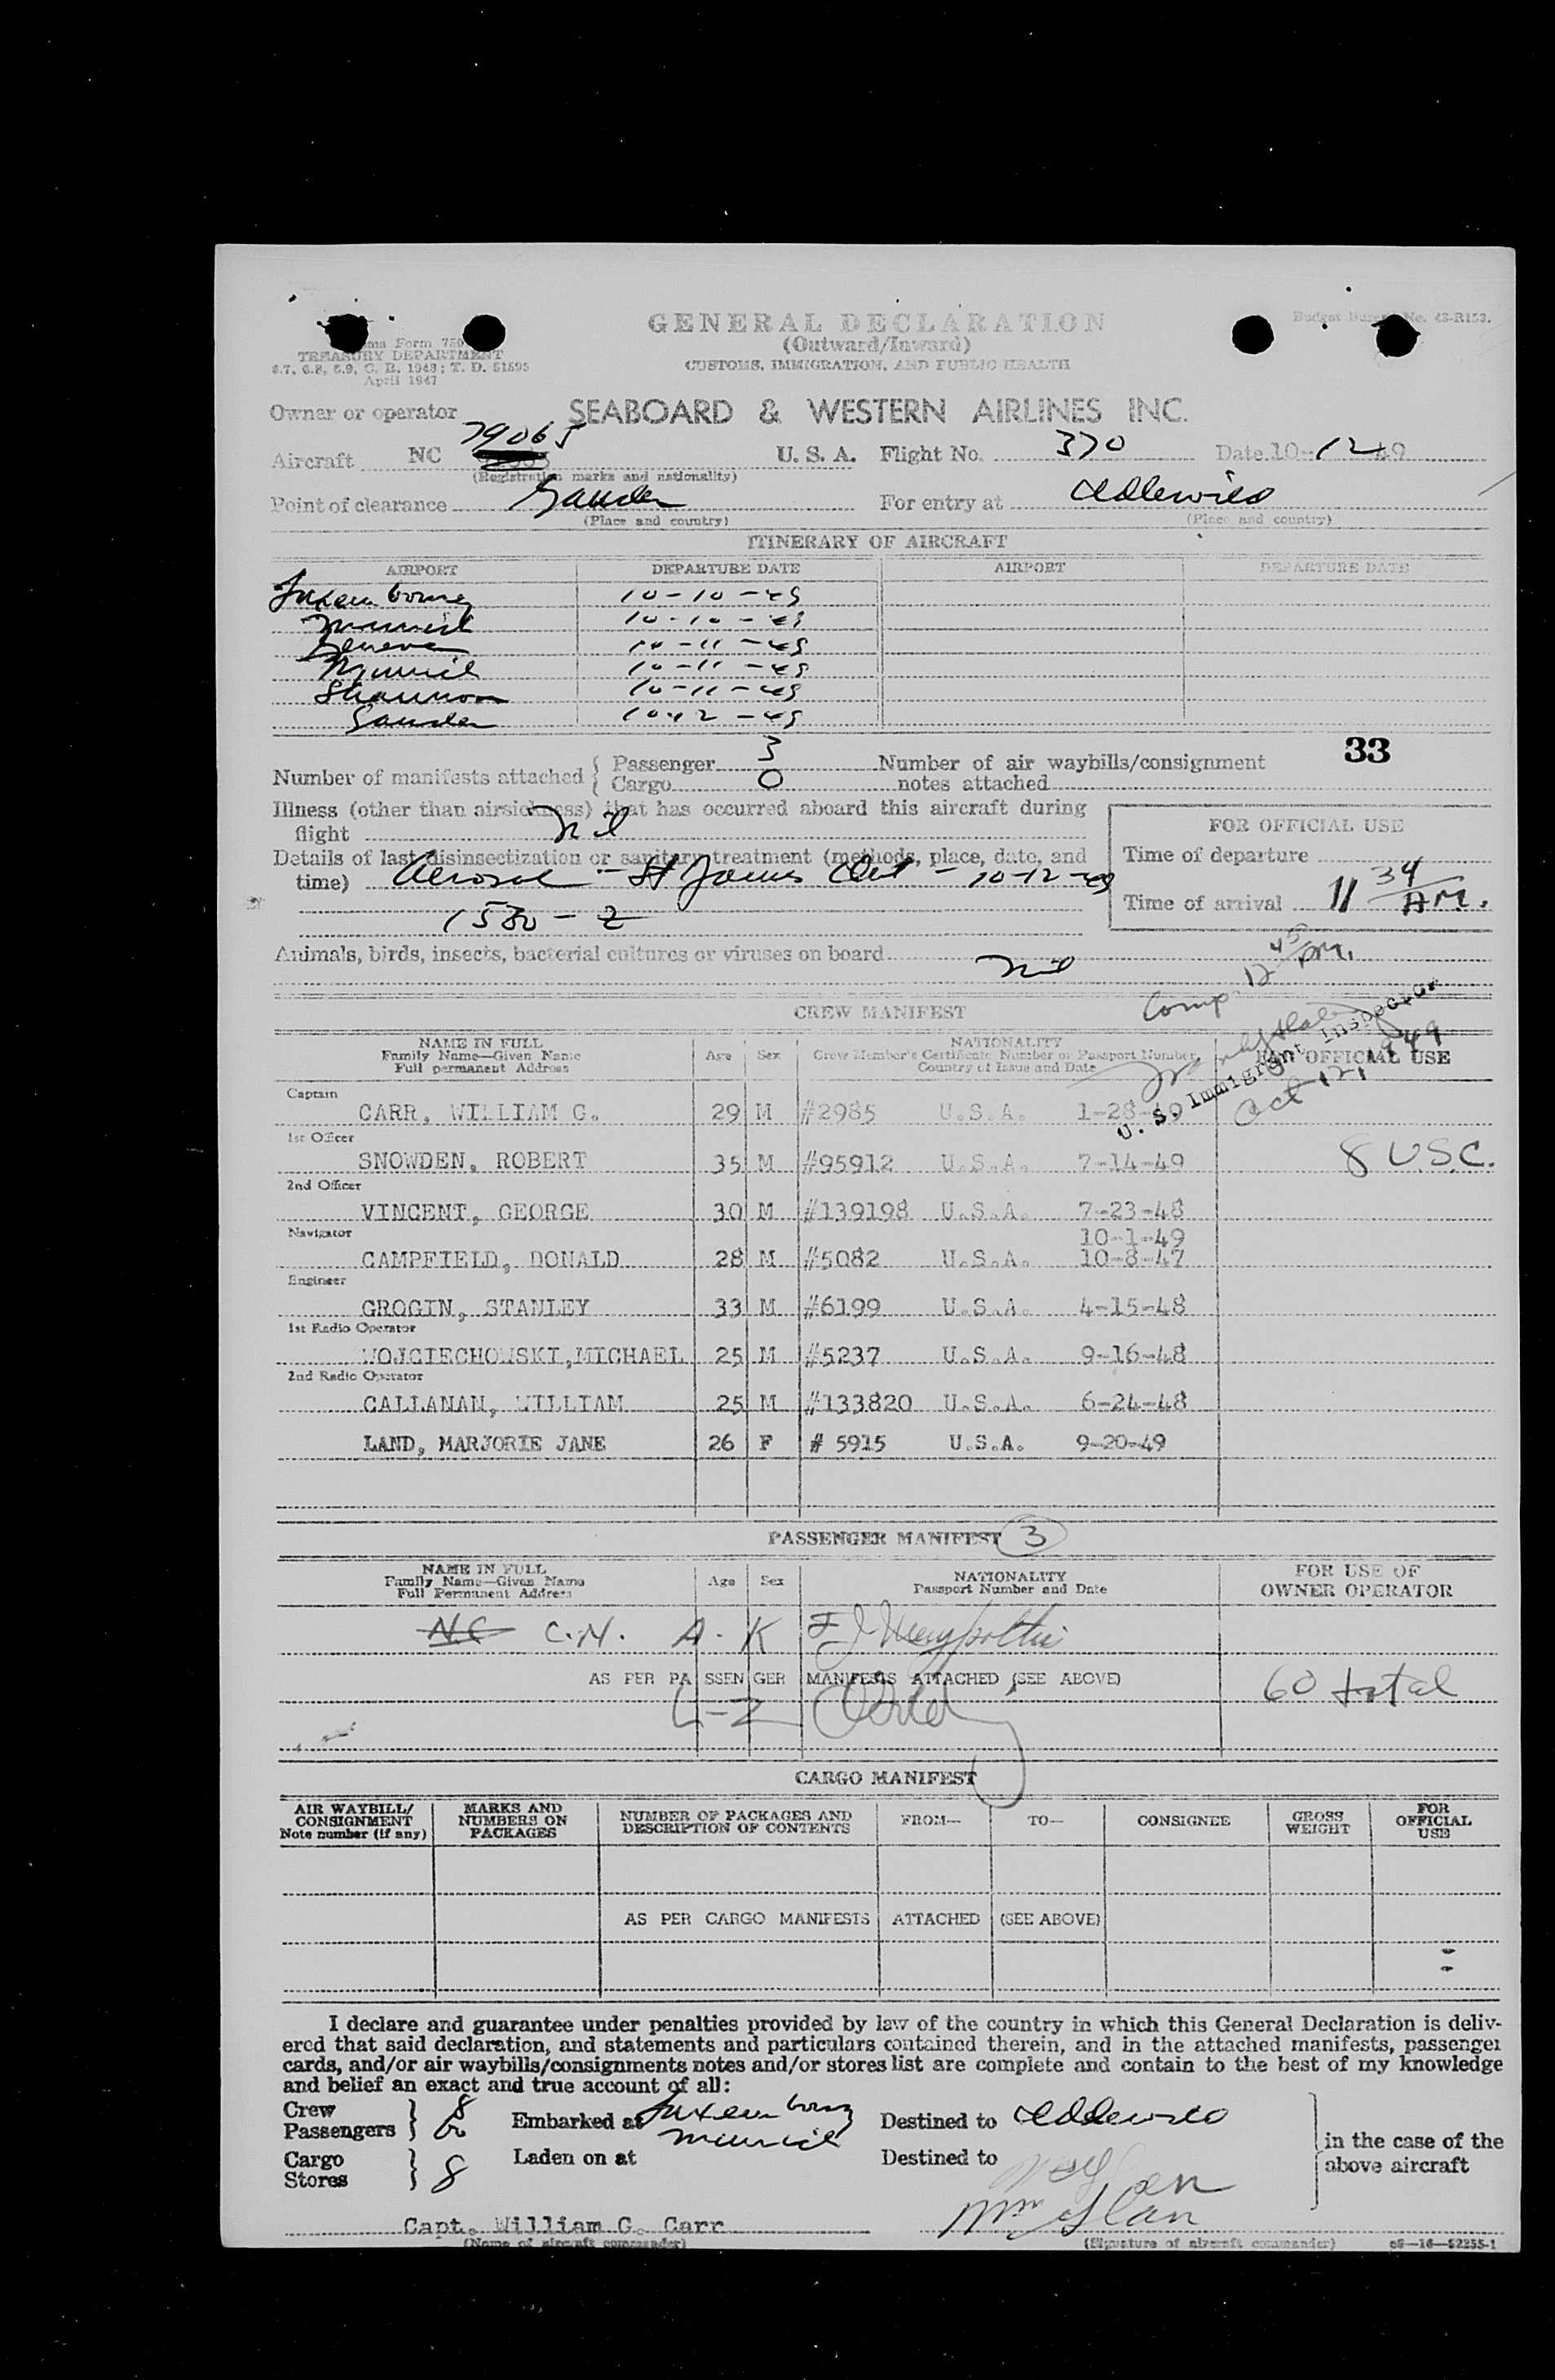 GENERAL DECLARATION
(Outward/Inward)
CUSTOMS, IMMIGRATION, AND PUBLIC HEALTH
Budget Bureau No. 43-R153.
Form
TREASURY DEPARTMENT
6.7, 6.8, 6.9, C. R. 1943; T. D. 51595
April 1947
Owner or operator SEABOARD & WESTERN AIRLINES INC.
79065
Aircraft NC U. S. A. Flight No. 370 Date 10-12-49
(Registration marks and nationality)
Point of clearance Gander For entry at Idlewild
(Place and country) (Place and country)
ITINERARY OF AIRCRAFT
AIRPORT DEPARTURE DATE AIRPORT DEPARTURE DATE
Luxembourg 10-10-49
Munich 10-10-49
Geneva 10-11-49
Munich 10-11-49
Shannon 10-11-49
Gander 10-12-49
33
Number of manifests attached { Passenger 3 Number of air waybills/consignment
Cargo 0 notes attached
Illness (other than airsickness) that has occurred aboard this aircraft during
flight nil
FOR OFFICIAL USE
Details of last disinsectization or sanitary treatment (methods, place, date, and
time) Aerosol - St James - 10-12-49
1530-Z
Time of departure
Time of arrival 11 34 AM.
Animals, birds, insects, bacterial cultures or viruses on board nil
Comp. 12 45 PM.
U. S. Immigrant Inspector
Oct 12, 1949
CREW MANIFEST
NAME IN FULL
Family Name—Given Name
Full permanent Address
Age Sex
NATIONALITY
Crew Member's Certificate Number or Passport Number,
Country of Issue and Date
FOR OFFICIAL USE
Captain
CARR, WILLIAM G. 29 M #2985 U.S.A. 1-28-49
1st Officer
SNOWDEN, ROBERT 35 M #95912 U.S.A. 7-14-49 8 U.S.C.
2nd Officer
VINCENT, GEORGE 30 M #139198 U.S.A. 7-23-48
Navigator 10-1-49
CAMPFIELD, DONALD 28 M #5082 U.S.A. 10-8-47
Engineer
GROGIN, STANLEY 33 M #6199 U.S.A. 4-15-48
1st Radio Operator
WOJCIECHOWSKI, MICHAEL 25 M #5237 U.S.A. 9-16-48
2nd Radio Operator
CALLANAN, WILLIAM 25 M #133820 U.S.A. 6-24-48
LAND, MARJORIE JANE 26 F # 5915 U.S.A. 9-20-49
PASSENGER MANIFEST 3
NAME IN FULL
Family Name—Given Name
Full Permanent Address
Age Sex
NATIONALITY
Passport Number and Date
FOR USE OF
OWNER OPERATOR
C.N. A - K
AS PER PASSENGER MANIFESTS ATTACHED (SEE ABOVE) 60 total
L-Z
CARGO MANIFEST
AIR WAYBILL/
CONSIGNMENT
Note number (if any)
MARKS AND
NUMBERS ON
PACKAGES
NUMBER OF PACKAGES AND
DESCRIPTION OF CONTENTS
FROM—
TO—
CONSIGNEE
GROSS
WEIGHT
FOR
OFFICIAL
USE
AS PER CARGO MANIFESTS ATTACHED (SEE ABOVE)
I declare and guarantee under penalties provided by law of the country in which this General Declaration is deliv-
ered that said declaration, and statements and particulars contained therein, and in the attached manifests, passenger
cards, and/or air waybills/consignments notes and/or stores list are complete and contain to the best of my knowledge
and belief an exact and true account of all:
Crew 8
Passengers 60 Embarked at Luxembourg Munich Destined to Idlewild
Cargo
Stores 8 Laden on at Destined to
in the case of the
above aircraft
Capt. William G. Carr
(Name of aircraft commander) (Signature of aircraft commander) 16—52255-1